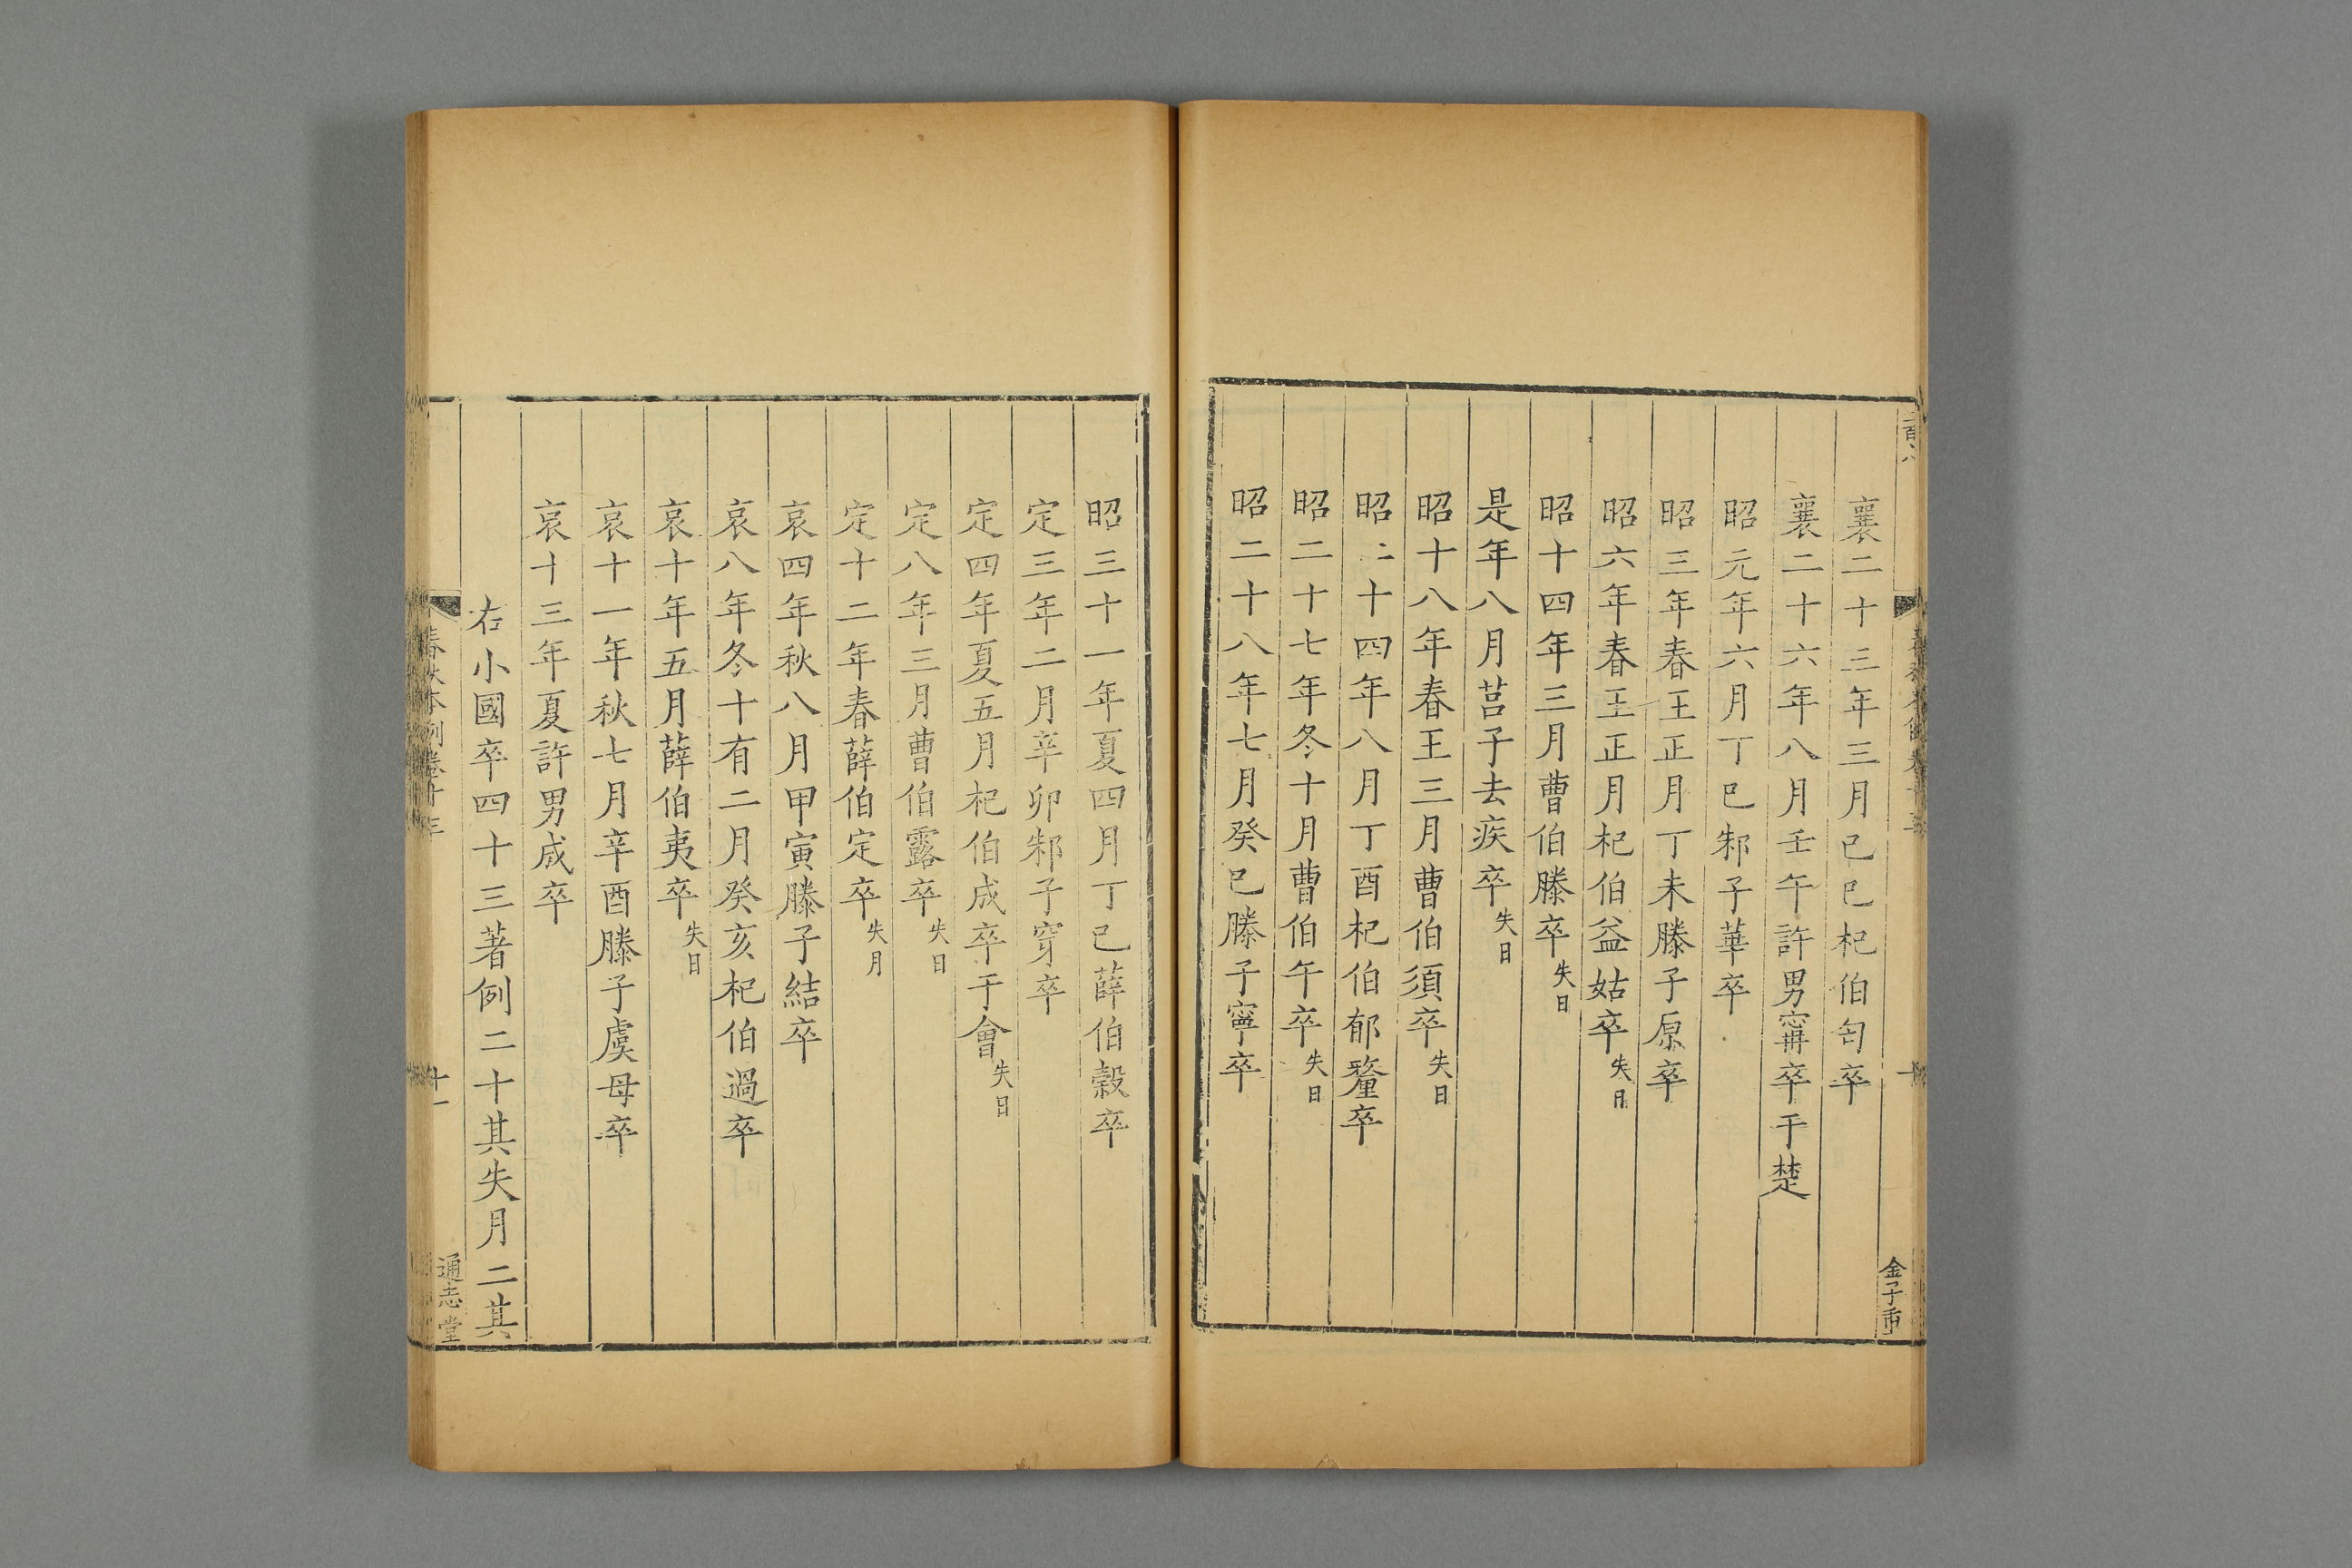 襄二十三年三月己巳杞伯匄卒
襄二十六年八月壬午許男甯卒于楚
昭元年六月丁巳邾子華卒
昭三年春王正月丁未滕子原卒
昭六年春王正月杞伯益姑卒失日
昭十四年三月曹伯滕卒失日
是年八月莒子去疾卒失日
昭十八年春王三月曹伯須卒失日
昭二十四年八月丁酉杞伯郁釐卒
昭二十七年冬十月曹伯午卒失日
昭二十八年七月癸巳滕子寧卒
金子重
昭三十一年夏四月丁巳薛伯穀卒
定三年二月辛卯邾子穿卒
定四年夏五月杞伯成卒于會失日
定八年三月曹伯露卒失日
定十二年春薛伯定卒失月
哀四年秋八月甲寅滕子結卒
哀八年冬十有二月癸亥杞伯過卒
哀十年五月薛伯夷卒失日
哀十一年秋七月辛酉滕子虞母卒
哀十三年夏許男成卒
右小國卒四十三著例二十其失月二其
春秋本例卷十三
十一
通志堂